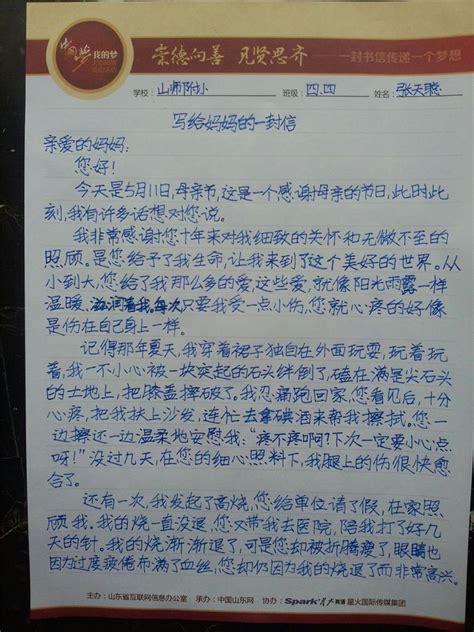 中国梦 我的梦
崇德向善 见贤思齐
一封书信传递一个梦想
学校：山师附小 班级：四.四 姓名：张天聪
写给妈妈的一封信
亲爱的妈妈：
您好！
今天是5月11日,母亲节,这是一个感谢母亲的节日,此时此
刻,我有许多话想对您说。
我非常感谢您十年来对我细致的关怀和无微不至的
照顾。是您给予了我生命,让我来到了这个美好的世界。从
小到大,您给了我那么多的爱,这些爱,就像阳光雨露一样
温暖、滋润着我。每次只要我受一点小伤,您就心疼的好像
是伤在自己身上一样。
记得那年夏天,我穿着裙子独自在外面玩耍,玩着玩
着,我一不小心被一块突起的石头绊倒了,磕在满是尖石头
的土地上,把膝盖摔破了。我忍痛跑回家,您看见后,十分
心疼,把我扶上沙发,连忙去拿碘酒来帮我擦拭。您一
边擦还一边温柔地安慰我:“疼不疼啊?下次一定要小心点
呀!”没过几天,在您的细心照料下,我腿上的伤很快愈
合了。
还有一次,我发起了高烧,您给单位请了假,在家照
顾我。我的烧一直没退,您又带我去医院,陪我打了好几
天的针。我的烧渐渐退了,可是您却被折腾瘦了,眼睛也
因为过度疲倦布满了血丝,您却仍因为我的烧退了而非常高兴。
主办：山东省互联网信息办公室 承办：中国山东网 协办：Spark 星火英语 星火国际传媒集团